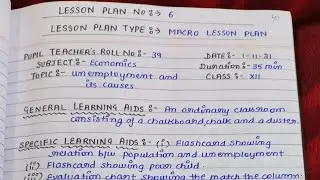 LESSON PLAN NO:-> 6
LESSON PLAN TYPE:-> MACRO LESSON PLAN
PUPIL TEACHER'S ROLL NO:- 39 DATE:- 1-11-21
SUBJECT:- Economics Duration:- 35 min
TOPIC:- unemployment and its causes CLASS:- XII
GENERAL LEARNING AIDS:- An ordinary classroom
consisting of a chalkboard, chalk and a duster.
SPECIFIC LEARNING AIDS:- (i) Flashcard showing
relation b/w population and unemployment
(ii) Flashcard showing poor child.
(iii) Evaluation chart showing the match the column.